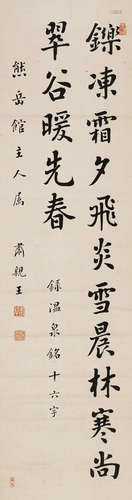 鑠凍霜夕飛炎雪晨林寒尚
翠谷暖先春
録温泉銘十六字
熊岳館主人属
肅親王